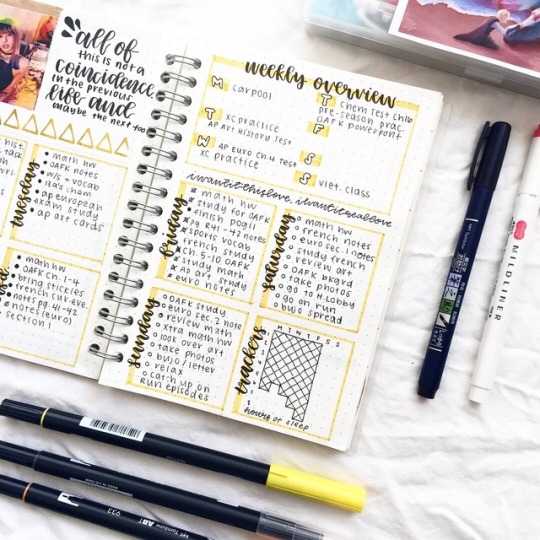 all of
this is not a
coincidence.
in the previous
life and
maybe the next too
tuesday
math hw
OAFK notes
w/s + vocab
ap european
exam study
ap art cards
math hw
OAFK Ch. 1-4
bring stickies
notes pg. 41-42
notes (euro)
section 1
weekly overview
M
carpool
T
xc practice
AP Art History Test
W
AP Euro Ch. 4 Test
xc practice
T
Chem Test Ch 16
pre-season prac.
OAFK powerpoint
F
S
S
Viet. class
i want it this love, i want it real love
friday
math hw
study for OAFK
finish pog!!
pg R41-42 notes
sports vocab
french study
Ch. 5-10 OAFK
study math
AP art study
euro notes
saturday
math hw
french notes
euro sec. 1 notes
study french
review art
OAFK bkgrd
take photos
go to H. Lobby
go on run
bujo spread
sunday
OAFK study
euro sec. 2 note
review math
xtra math hw
look over art
take photos
bujo / letter
relax
catch up on
run episodes
trackers
M T W T F S S
hours of sleep
MILDLINER
Tombow
933